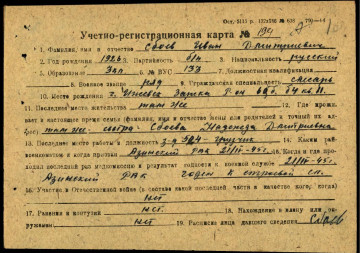 Учетно-регистрационная карта № 194
1. Фамилия, имя и отчество Сбоев Иван Дмитриевич
2. Год рождения 1926 3. Партийность б/п 4. Национальность русский
5. Образование 6. № ВУС 133 7. Должностная квалификация
8. Военное звание ряд 9. Гражданская специальность слесарь
10. Место рождения г. Ижевск
11. Последнее место жительства там же 12. Где прожи-
вает в настоящее время семья (фамилия, имя и отчество жены или родителей и точный их ад-
рес) там же - сестра - Сбоева Надежда Дмитриевна
13. Последнее место работы и должность з-д 524 - грузчик 14. Каким рай-
военкоматом и когда призван Азинский РВК 21/III-45 г. Когда и где про-
ходил последний раз медкомиссию и результат годности к военной службе 21/III-45 г.
Азинский РВК годен к строевой сл.
16. Участие в Отечественной войне (в составе какой последней части в качестве кого, когда)
нет
17. Ранения и контузии нет 18. Нахождение в плену или ок-
ружении нет 19. Расписка лица давшего сведения Сбоев